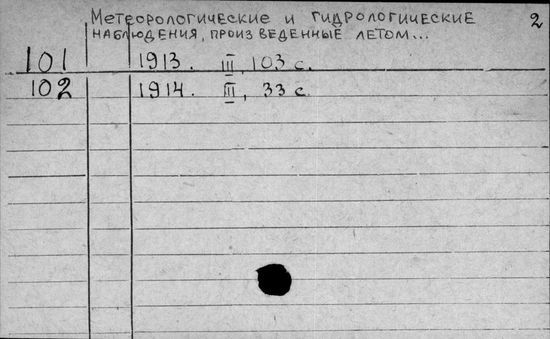 Метеорологические и гидрологические 2
наблюдения, произведенные летом...
101 1913. III, 103 с.
102 1914. III, 33 с